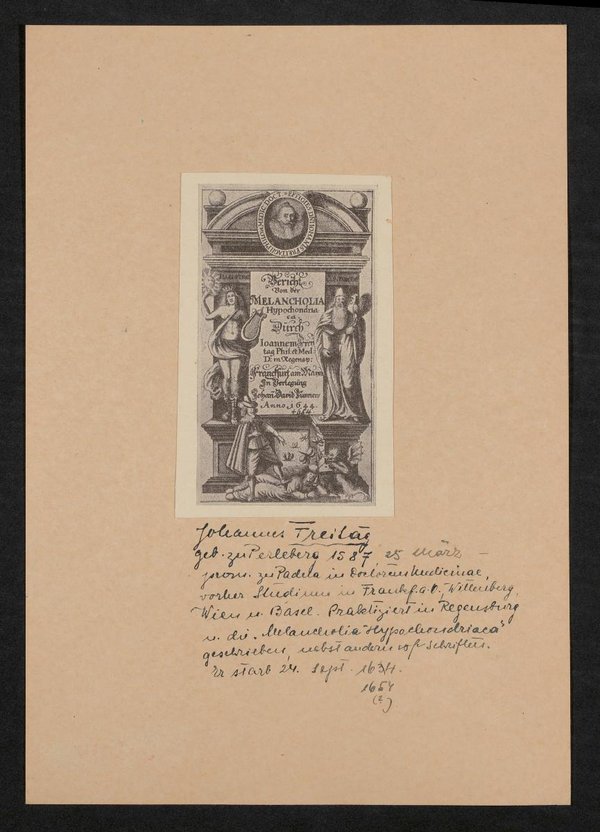 Bericht
Von der
MELANCHOLIA
Hypochondria
ca
Durch
Ioannem Frey
tag Phil. et Med:
D. in Regensp:
Franckfurt am Main
In Verlegung
Johan David
Anno. 1644
Johannes Freitag
geb. zu Perleberg 1587, 25 März –
prom. zu Padua in Doctorem Medicinae,
vorher Studium in Frankf. a.O., Wittenberg,
Wien u. Basel. Praktiziert in Regensburg
u. die "Melancholia Hypochondriaca"
geschrieben, nebst andern Schriften.
Er starb 24. Sept. 1634.
1654
(?)